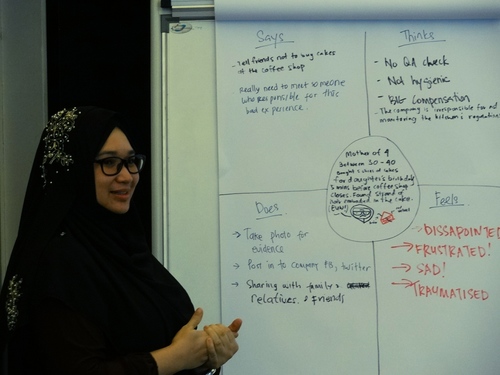 Says
- Tell friends not to buy cakes
at the coffee shop
Really need to meet someone
who responsible for this
bad experience.
Thinks
- No QA check
- Not hygienic
- BIG Compensation
- The company is irresponsible for not
monitoring the
Mother of 4
Between 30-40
Bought slices of cakes
for daughter's birthday
5 mins before coffee shop
closes. Found strand of
hair embedded in the cake.
Does
→ Take photo for
evidence
→ Post in to company FB, twitter
→ Sharing with family,
relatives & friends
Feels
→ DISSAPOINTED
→ FRUSTRATED!
→ SAD!
→ TRAUMATISED